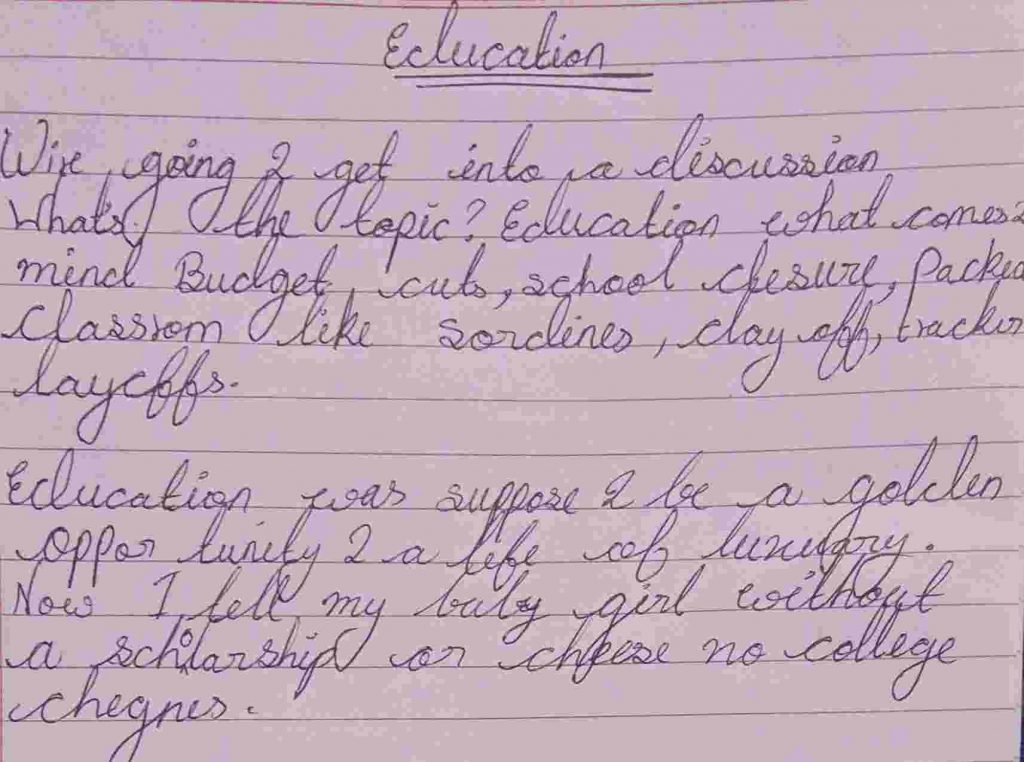 Education
Wire going 2 get into a discussion
What's the topic? Education what comes 2
mind Budget, cuts, school closure, Packed
Classrom like sardines, day off, tracker
layoffs.
Education was suppose 2 be a golden
oppor tunity 2 a life of luxury.
Now I tell my baby girl without
a scholarship or cheese no college
chegnes.